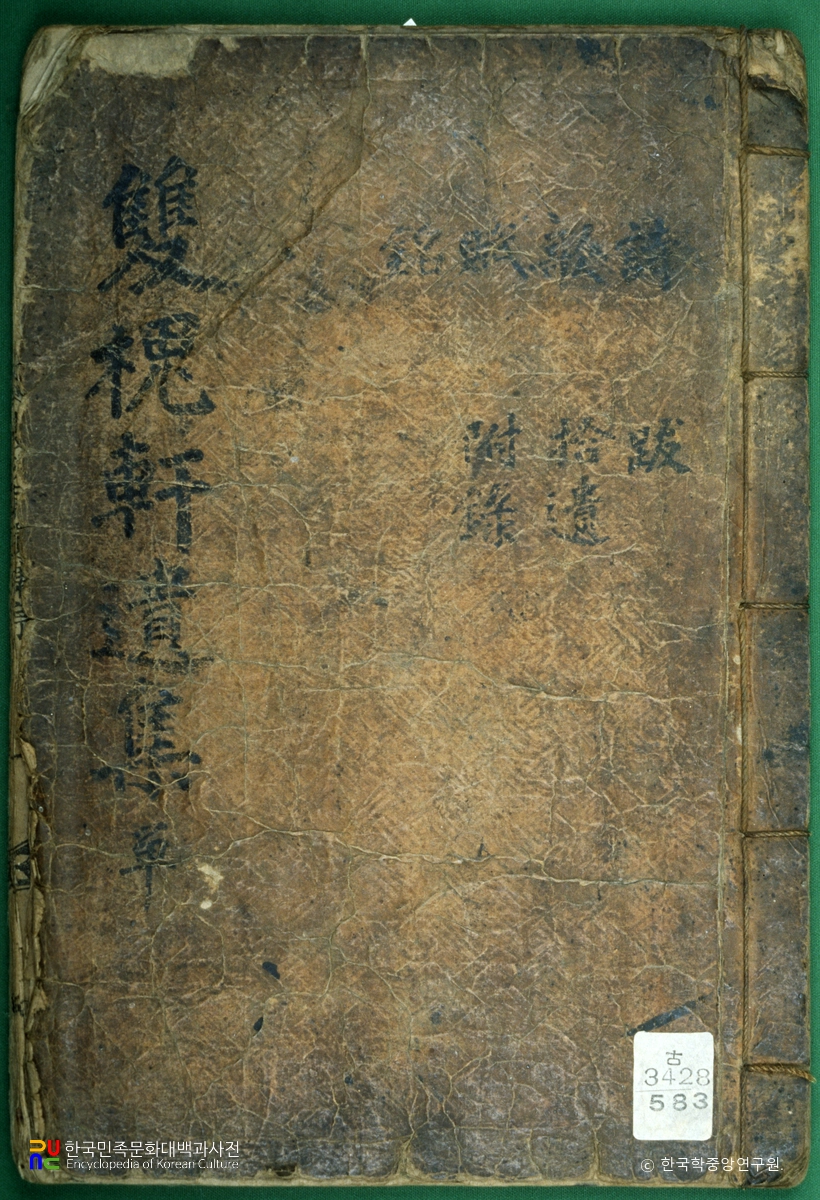 詩 跋
拾遺
附錄
銘
雙槐軒遺集 單
古
3428
583
한국민족문화대백과사전
Encyclopedia of Korean Culture
© 한국학중앙연구원